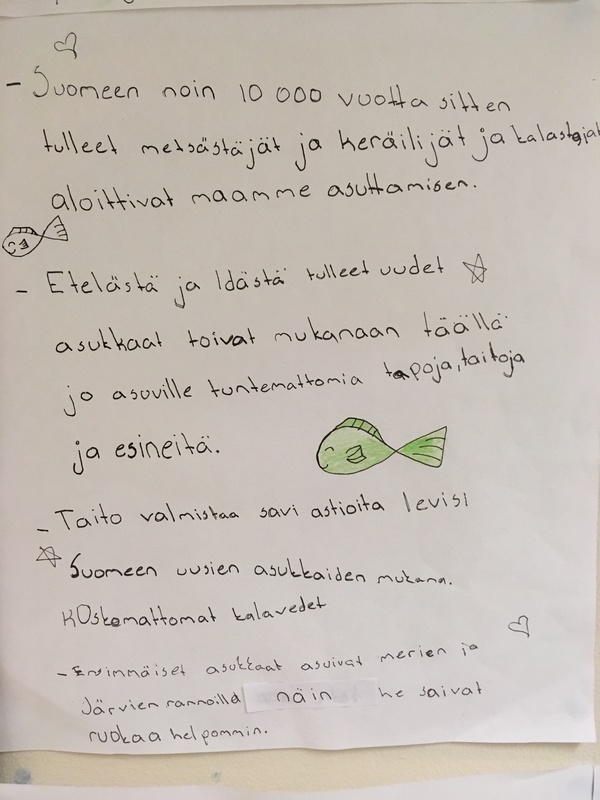 - Suomeen noin 10 000 vuotta sitten
tulleet metsästäjät ja keräilijät ja kalastajat
aloittivat maamme asuttamisen.
- Etelästä ja Idästä tulleet uudet
asukkaat toivat mukanaan täällä
jo asuville tuntemattomia tapoja, taitoja
ja esineitä.
- Taito valmistaa savi astioita levisi
Suomeen uusien asukkaiden mukana.
KOskemattomat kalavedet
- Ensimmäiset asukkaat asuivat merien ja
Järvien rannoilla näin he saivat
ruokaa helpommin.